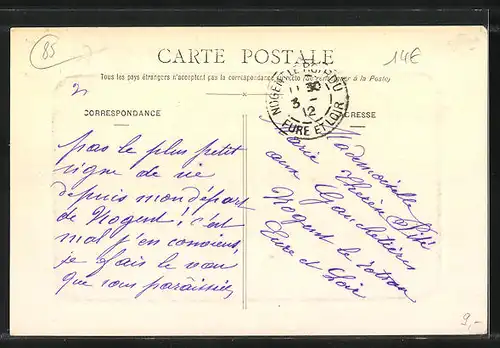 85
CARTE POSTALE
14€
Tous les pays étrangers n'acceptent pas la correspondance
à la Poste)
CORRESPONDANCE
ADRESSE
NOGENT-LE-ROTROU
11 30
3 - 1
12
EURE ET LOIR
pas le plus petit
signe de vie
depuis mon départ
de Nogent! c'est
mal j'en conviens,
je fais le vœu
que vous
Mademoiselle
Marie Thérèse
aux Gauchetières
Nogent le Rotrou
Eure et Loir
9,-